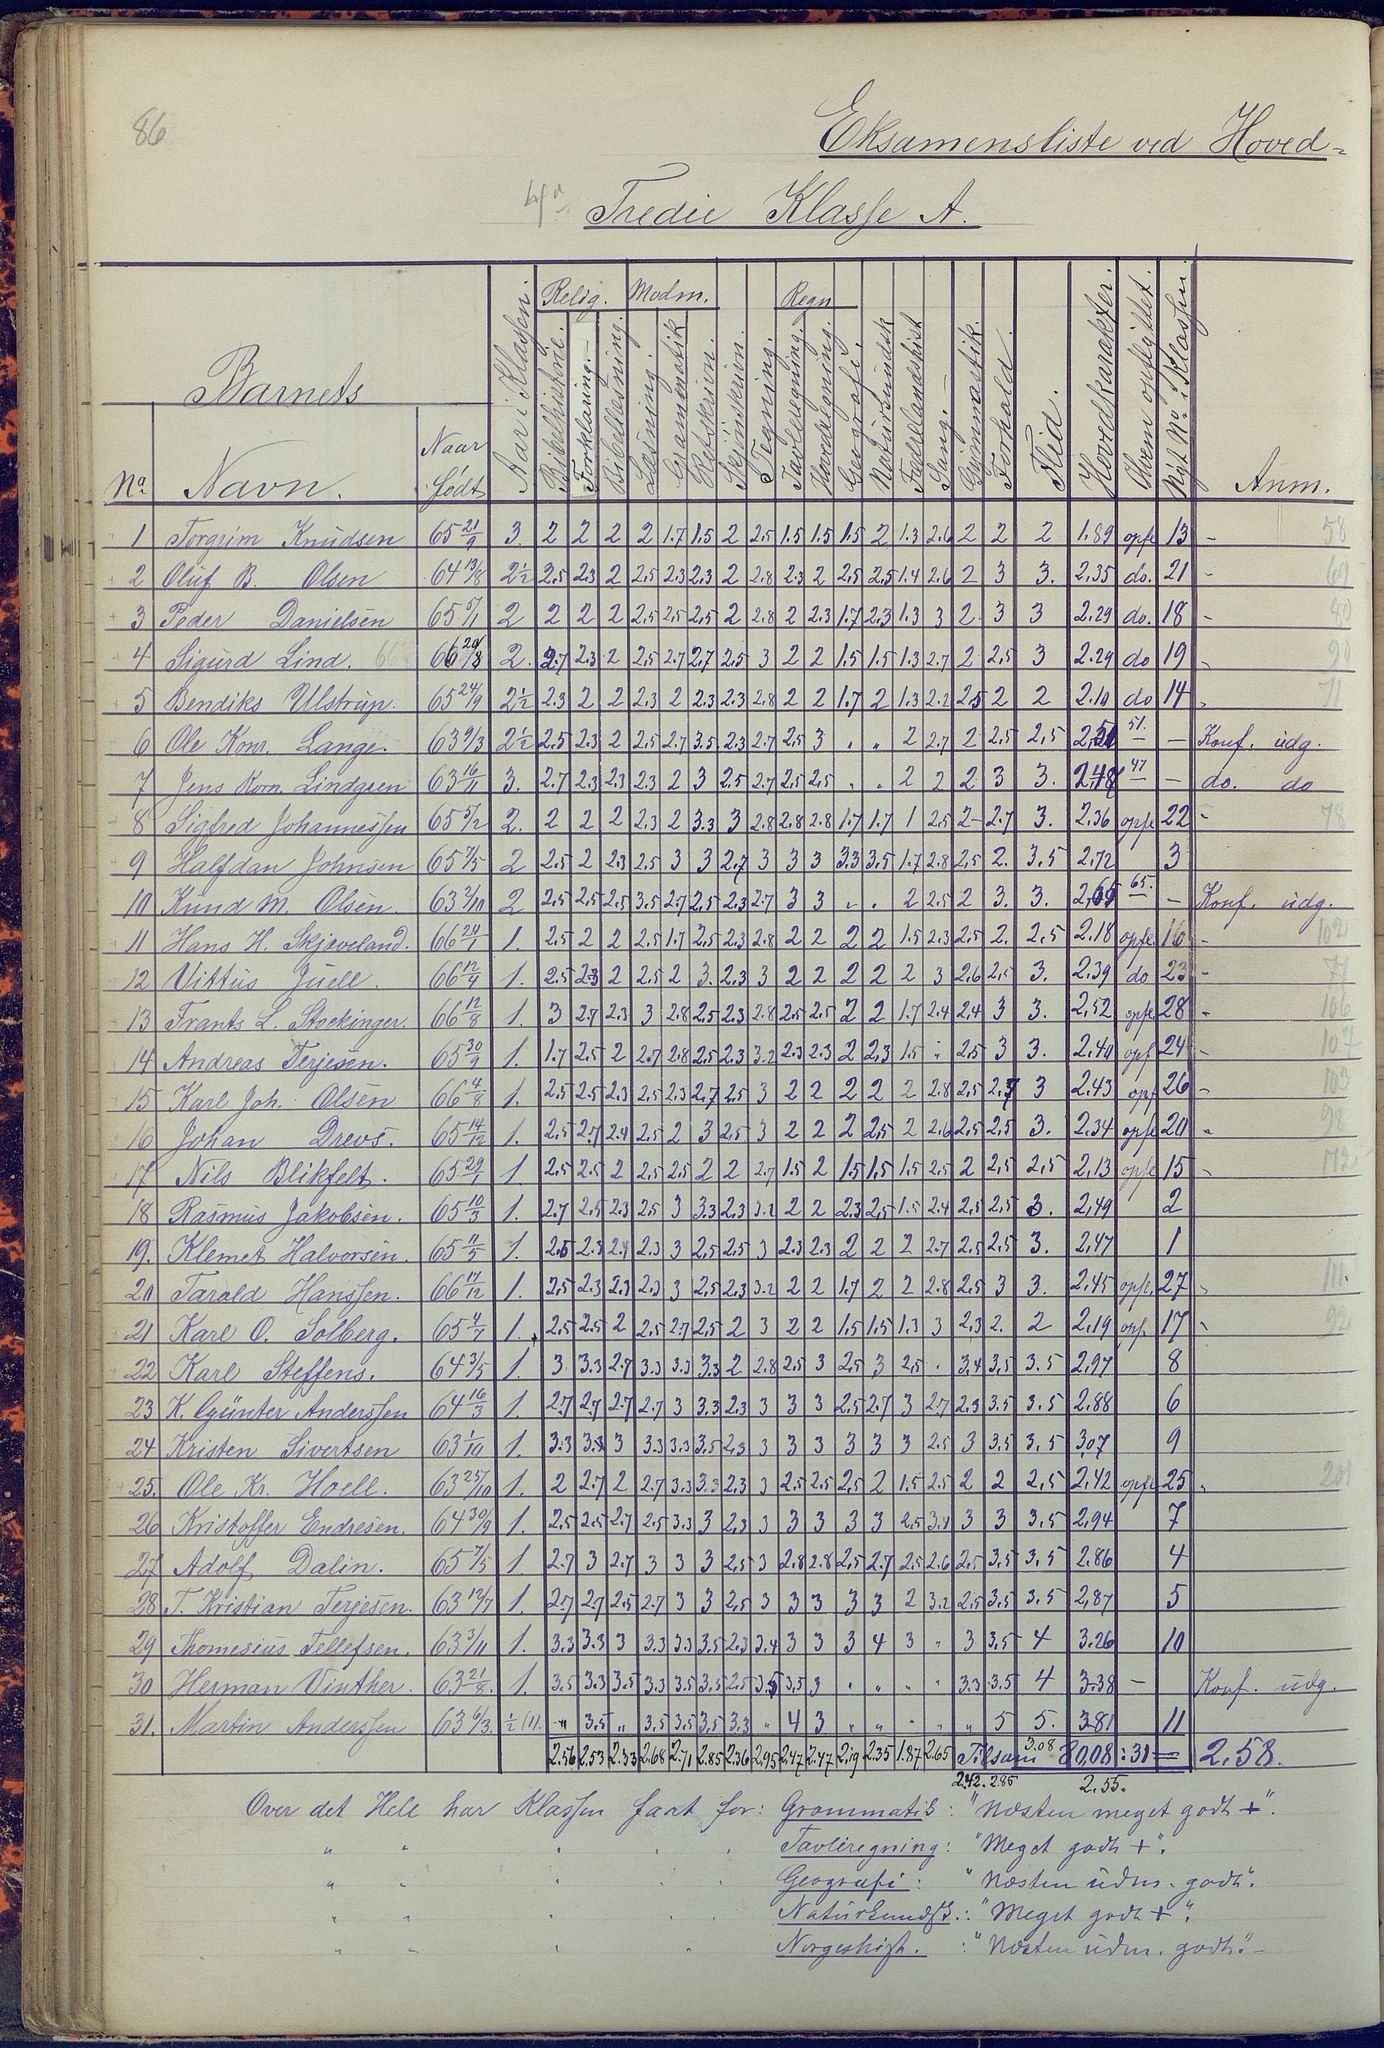 86
Eksamensliste ved Hoved-
Tredie Klasse A.
Barnets
Relig. Modm. Regn
No. Navn. Naar født Aar i Klassen. Bibelhistorie. Forklaring. Bibellæsning. Læsning. Grammatik Retskrivn. Skjönskrivn. Tegning. Tavleregning. Hovedregning. Geografi. Naturkundsk Fædrelandshist Sang. Gymnastik. Forhold. Flid. Hovedkarakter. Hvem opflyttet. Nyt No. i Klassen. Anm.
1 Torgrim Knudsen 65 21/9 3. 2 2 2 2 1.7 1.5 2 2.5 1.5 1.5 1.5 2 1.3 2.6 2 2 2 1.89 opfl 13 - 58
2 Oluf B. Olsen 64 13/8 2½ 2.5 2.3 2 2.5 2.3 2.3 2 2.8 2.3 2 2.5 2.5 1.4 2.6 2 3 3. 2.35 do. 21 - 69
3 Peder Danielsen 65 5/1 2 2 2 2 2.5 2.5 2.5 2 2.8 2 2.3 1.7 2.3 1.3 3 2. 3 3 2.29 do. 18 - 80
4 Sigurd Lind. 66 20/8 2. 2.7 2.3 2 2.5 2.7 2.7 2.5 3 2 2 1.5 1.5 1.3 2.7 2 2.5 3 2.29 do 19 - 90
5 Bendiks Ulstrup. 65 24/9 2½ 2.3 2 2 2.3 2 2.3 2.3 2.8 2 2 1.7 2 1.3 2.2 2.5 2 2 2.10 do 14 - 71
6 Ole Konr. Lange. 63 9/3 2½ 2.5 2.3 2 2.5 2.7 3.5 2.3 2.7 2.5 3 " " 2 2.7 2 2.5 2.5 51. - Konf. udg.
7 Jens Korn. Lindgren 63 16/11 3. 2.7 2.3 2.3 2.3 2 3 2.5 2.7 2.5 2.5 " " 2 2 2 3 3. 2.48 47 - do. do
8 Sigfred Johannessen 65 5/2 2. 2 2 2 2.3 2 3.3 3 2.8 2.8 2.8 1.7 1.7 1 2.5 2- 2.7 3. 2.36 opfl 22 - 78
9 Halfdan Johnsen 65 7/5 2 2.5 2 2.3 2.5 3 3 2.7 3 3 3 3.3 3.5 1.7 2.8 2.5 2. 3.5 2.72 3
10 Knud M. Olsen 63 2/10 2 2.5 2.5 2.5 3.5 2.7 2.5 2.3 2.7 3 3 " " 2 2.5 2 3. 3. 2.65 65. - Konf. udg.
11 Hans H. Skjeveland. 66 24/1 1. 2.5 2 2 2.5 1.7 2.5 2.3 2.8 2 2 2 2 1.5 2.3 2.5 2. 2.5 2.18 opfl. 16 - 102
12 Vittus Juell. 66 12/4 1. 2.5 2.3 2 2.5 2 3. 2.3 3 2 2 2 2 2 3 2.6 2.5 3. 2.39 do 23 - 77
13 Frants L. Stockinger. 66 12/8 1. 3 2.7 2.3 3 2.8 2.5 2.3 2.8 2.5 2.5 2 2 1.7 2.4 2.4 3 3. 2.52 opfl. 28 - 106
14 Andreas Terjesen. 65 30/9 1. 1.7 2.5 2 2.7 2.8 2.5 2.3 3.2 2.3 2.3 2 2.3 1.5 " 2.5 3 3. 2.40 opf 24 - 107
15 Karl Joh. Olsen 66 4/8 1. 2.5 2.5 2.3 2.5 2.3 2.7 2.5 3 2 2 2 2 2 2.8 2.5 2.7 3 2.43 opf 26 - 103
16 Johan Drevs. 65 14/12 1. 2.5 2.7 2.4 2.5 2 3 2.5 3 2 2 2 2.5 2 2.6 2.5 2.5 3. 2.34 opfl 20 - 98
17 Nils Blikfelt. 65 29/1 1. 2.5 2.5 2 2.5 2.5 2 2 2.7 1.5 2 1.5 1.5 1.5 2.5 2 2.5 2.5 2.13 opfl 15 - 112
18 Rasmus Jakobsen. 65 10/3 1. 2.7 2.5 2.3 2.5 3 3.3 2.3 3.2 2 2 2.3 2.5 1.5 2.4 2.5 2.5 3. 2.49 2
19. Klemet Halvorsen. 65 11/5 1. 2.5 2.3 2.4 2.3 3 2.5 2.5 3 2.3 2.3 2 2 2 2.7 2.5 2.5 3. 2.47 1
20 Tarald Hanssen. 66 17/12 1. 2.5 2.3 2.3 2.3 3 2.5 2.3 3.2 2 2 1.7 2 2 2.8 2.5 3 3. 2.45 opfl. 27 - 111.
21 Karl O. Solberg. 65 4/7 1. 2.5 2.5 2 2.5 2.7 2.5 2 3 2 2 1.5 1.5 1.3 3 2.3 2. 2 2.19 opf. 17 - 92
22 Karl Steffens. 64 3/5 1. 3 3.3 2.7 3.3 3.3 3.3 2 2.8 2.5 3 2.5 3 2.5 . 3.4 3.5 3.5 2.97 8
23 K. Günter Anderssen 64 16/3 1. 2.7 2.7 2.7 2.7 3 3.3 2.3 3 3 3 2.5 2.7 3 2.7 2.3 3.5 3.5 2.88 6
24 Kristen Sivertsen 63 1/10 1. 3.3 3.3 3 3.3 3.3 3.5 2.3 3 3 3 3 3 3 2.5 3 3.5 3.5 3.07 9
25. Ole Kr. Hoell. 63 25/10 1. 2 2.7 2 2.7 3.3 3.3 2.3 3 2.5 2.5 2.5 2 1.5 2.5 2 2 2.5 2.42 opfl 25 -
26 Kristoffer Endresen. 64 30/9 1. 2.5 2.5 2.7 2.5 3.3 3 2.3 3 3 3 3 3 2.5 3.4 3 3 3.5 2.94 7
27 Adolf Dalin. 65 7/5 1. 2.7 3 2.7 3 3 3 2.5 3 2.8 2.8 2.5 2.7 2.5 2.6 2.5 3.5 3.5 2.86 4
28 T. Kristian Terjesen. 63 12/7 1. 2.7 2.7 2.5 2.7 3 3 2.5 3 3 3 3 3 2 3.2 2.5 3.5 3.5 2.87 5
29 Thomesius Tellefsen. 63 3/11 1. 3.3 3.3 3 3.3 3.3 3.5 2.3 3.4 3 3 3 4 3 " 3 3.5 4 3.26 10
30 Herman Vinther. 63 21/8 1. 3.5 3.3 3.5 3.3 3.5 3.5 2.5 3.5 3.5 3 " " " " 3.3 3.5 4 3.38 - Konf. udg.
31. Martin Anderssen 63 6/3. ½ (1). " 3.5 " 3.5 3.5 3.5 3.3 " 4 3 " " " " " 5 5. 3.81 11
2.56 2.53 2.33 2.68 2.71 2.85 2.36 2.95 2.47 2.47 2.19 2.35 1.87 2.65 Tilsam 3.08 80.08 : 31 = 2.58.
2.42. 2.85 2.55.
Over det Hele har Klassen faat for: Grammatik: "Næsten meget godt +".
" " " " " Tavleregning: "Meget godt +".
" " " " " Geografi: "Næsten udm. godt".
" " " " " Naturkundsk.: "Meget godt +".
" " " " " Norgeshist. : "Næsten udm. godt." -